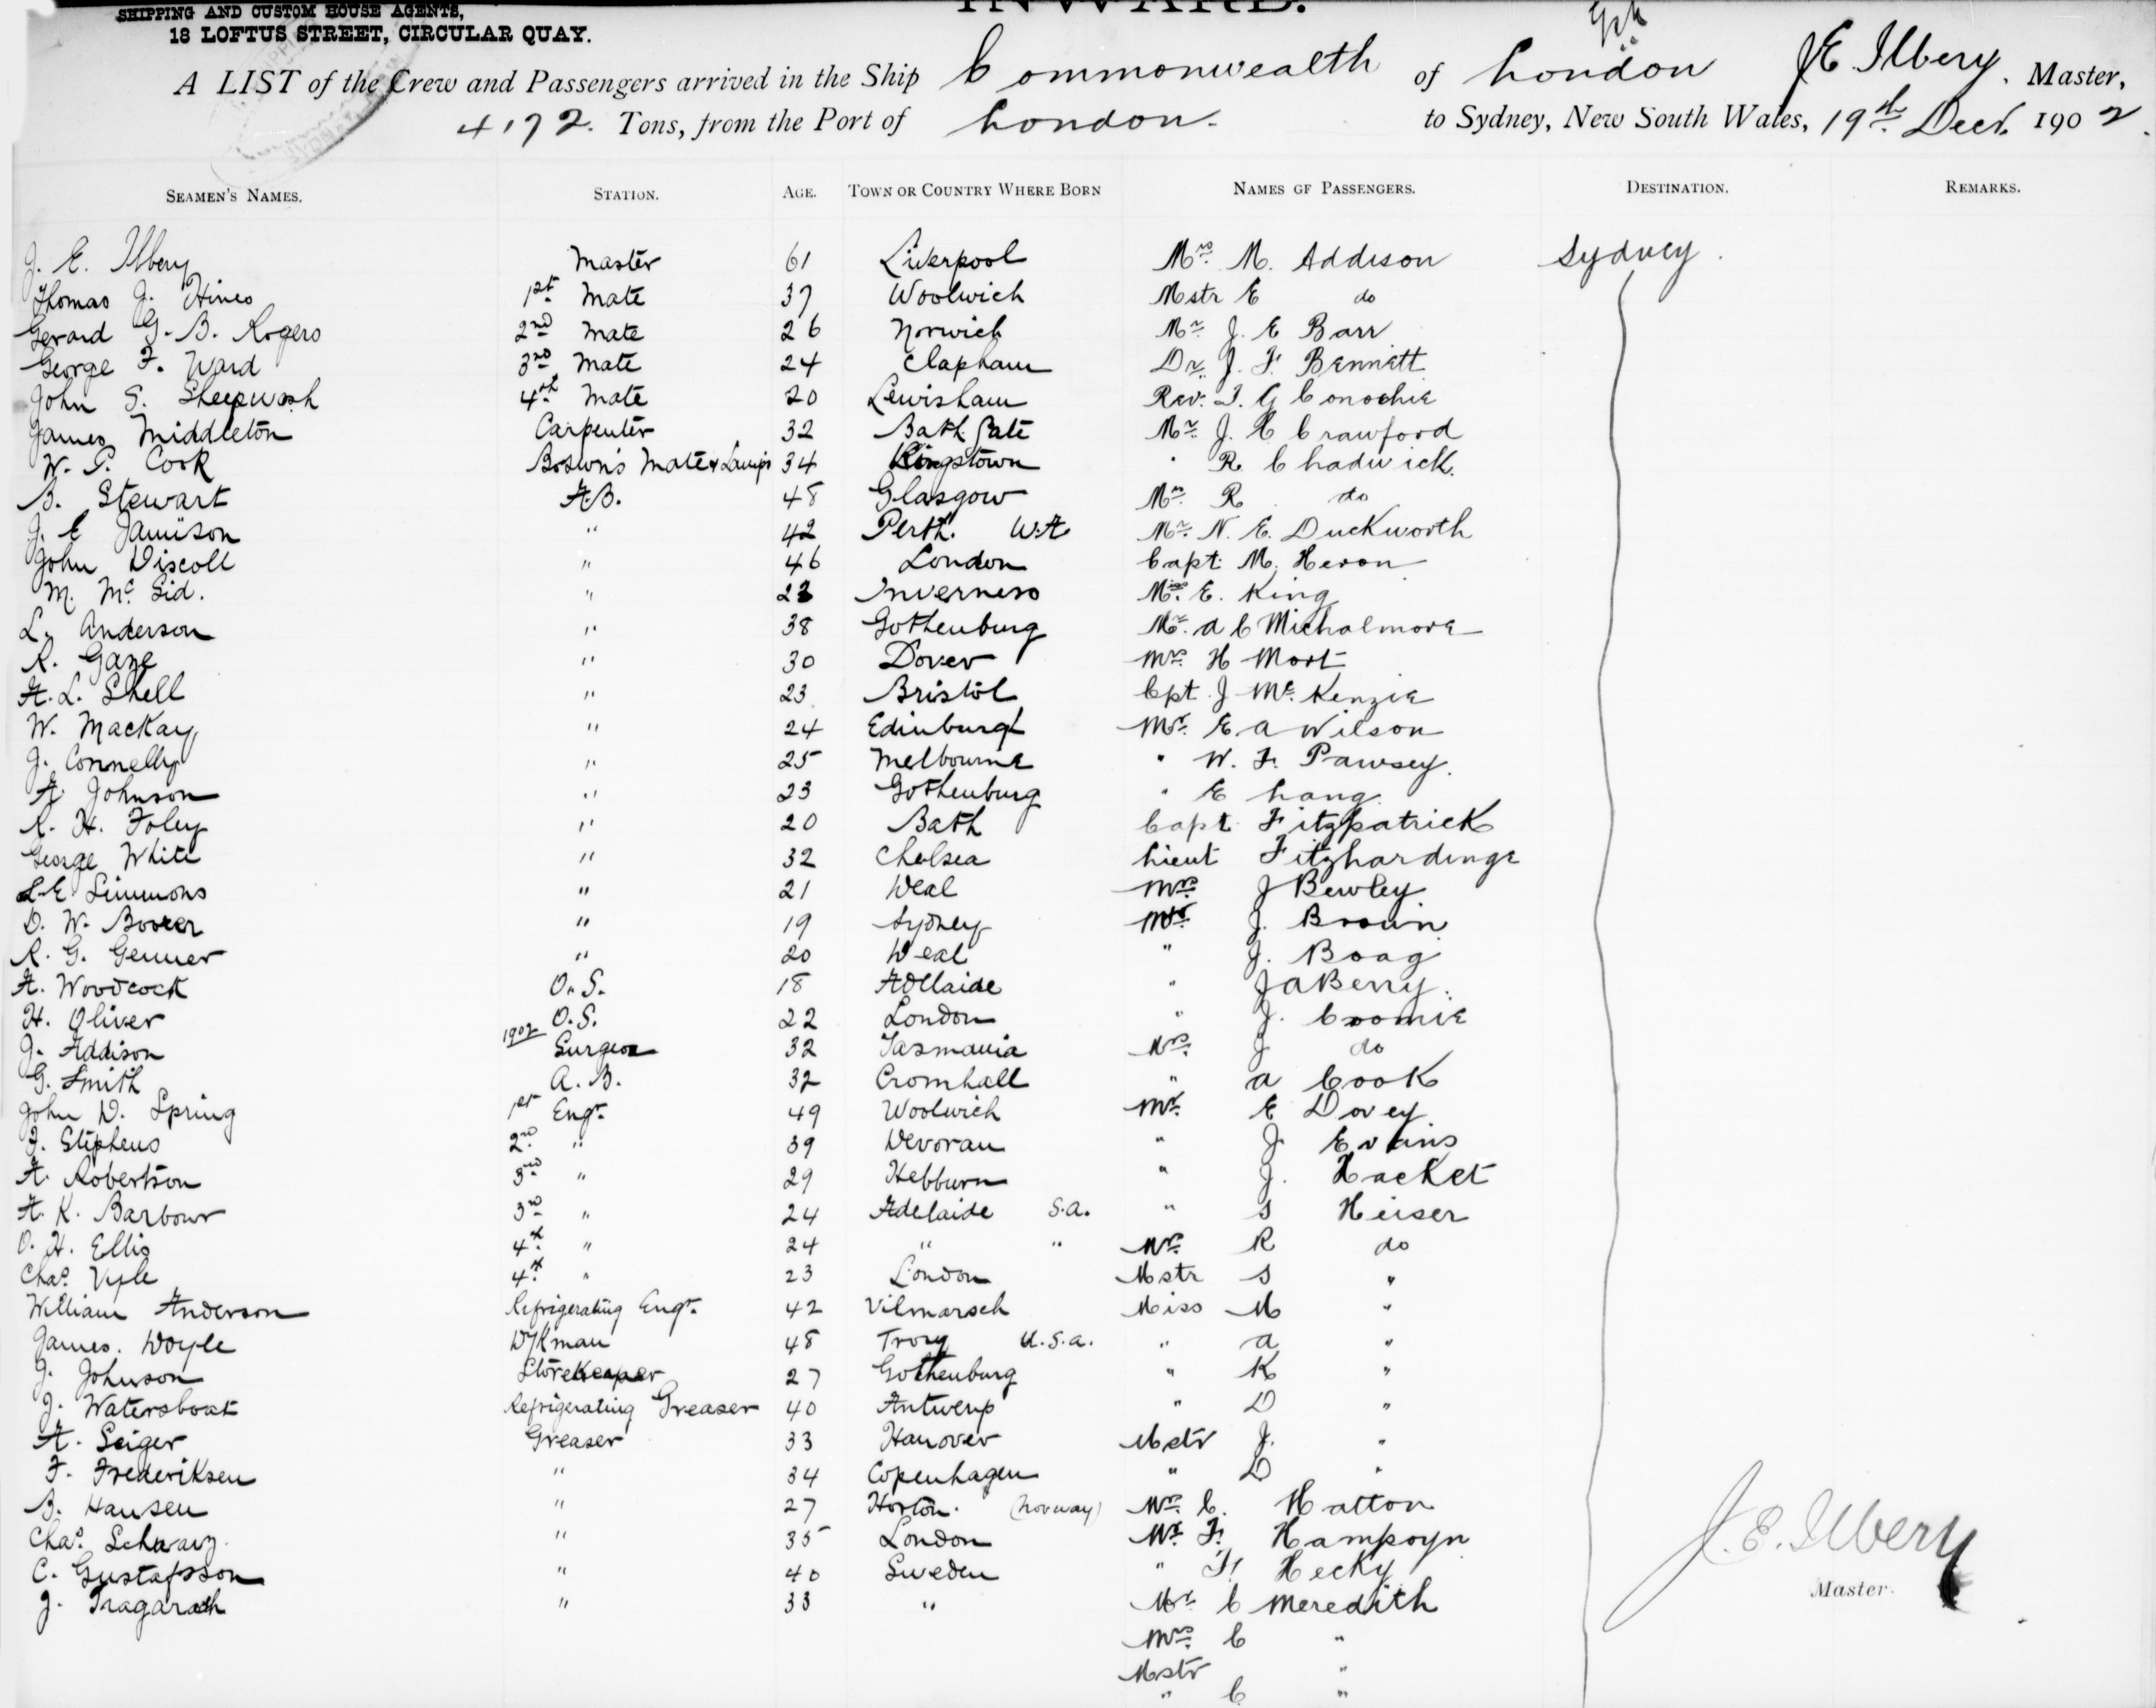 SHIPPING AND CUSTOM HOUSE AGENTS,
18 LOFTUS STREET, CIRCULAR QUAY.
INWARD.
A LIST of the Crew and Passengers arrived in the Ship Commonwealth of London J E Ilbery. Master,
4172. Tons, from the Port of London. to Sydney, New South Wales, 19th Decr. 1902.
SEAMEN'S NAMES. STATION. AGE. TOWN OR COUNTRY WHERE BORN NAMES OF PASSENGERS. DESTINATION. REMARKS.
J. E. Ilbery Master 61 Liverpool Mrs. M. Addison Sydney.
Thomas J. Hines 1st Mate 37 Woolwich Mstr E do
Gerard G. B. Rogers 2nd Mate 26 Norwich Mr. J. E Barr
George F. Ward 3rd Mate 24 Clapham Dr. J. F. Bennett
John S. Sheepwash 4th Mate 20 Lewisham Rev. T. G Conochie
James Middleton Carpenter 32 Bath Gate Mr. J. C Crawford
W. P. Cook Bosun's Mate & Lamps 34 Kingstown " R Chadwick.
B. Stewart A.B. 48 Glasgow Mrs. R do
J. E Jamieson " 42 Perth. W.A Mr. N. E. Duckworth
John Discoll " 46 London Capt. M. Heron
M. Mc. " 23 Inverness Miss. E. King
L. Anderson " 38 Gothenburg Mr. A C Michalmore
R. Gaze " 30 Dover Mrs. H Mort
A. L. Shell " 23 Bristol Cpt. J Mc. Kenzie
W. Mackay " 24 Edinburgh Mr. E A Wilson
J. Connelly " 25 Melbourne " W. F. Pawsey.
A. Johnson " 23 Gothenburg " E Lang.
R. H. Foley " 20 Bath Capt. Fitzpatrick
George White " 32 Chelsea Lieut Fitzhardinge
L. E Simmons " 21 Deal Mrs. J Bewley
D. W. " 19 Sydney J. Broun
R. G. Genner " 20 Deal " J. Boag
A. Woodcock O.S. 18 Adllaide " J A Berry.
H. Oliver O.S. 22 London " J. Coomie
J. Addison 1902 Surgeon 32 Tasmania Mrs. J do
G. Smith A.B. 32 Cromhall " A Cook
John D. Spring 1st Engr. 49 Woolwich Mr. E Dovey
J. Stephens 2nd " 39 Devoran " J. Evans
A. Robertson 3rd " 29 Hebburn " J. Hacket
A. K. Barbour 3rd " 24 Adelaide S.A. " S Heiser
O. H. Ellis 4th " 24 " " Mrs. R do
Chas. Vyle 4th " 23 London Mstr S "
William Anderson Refrigerating Engr. 42 Vilmarsch Miss M "
James. Doyle Dykman 48 Troy U.S.A. " A "
J. Johnson Storekeeper 27 Gothenburg " K "
J. Watersboat Refrigerating Greaser 40 Antwerp " D "
A. Seiger Greaser 33 Hanover Mstr J. "
F. Frederiksen " 34 Copenhagen " D "
B. Hansen " 27 Horton. (Norway) Mrs. C. Hatton
Chas. Schwarz. " 35 London Mr. F. Hampoyn
C. Gustafsson " 40 Sweden " F. Hecky
J. Tragardh " 33 " Mr. C Meredith
Mrs. C "
Mstr "
" C. "
J. E. Ilbery
Master.